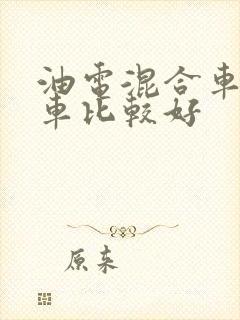 油電混合車
車比較好
原来